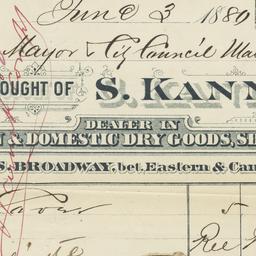 June 3 1880
Mayor & City Council
OUGHT OF S. KANN
DEALER IN
& DOMESTIC DRY GOODS, S
S. BROADWAY, bet. Eastern & Can
5
Rec